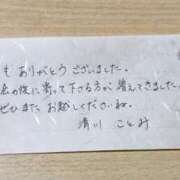 もありがとうございました。
の後に寄って下さる方が増えてきました
ぜひまたお越しくださいね。
清川 ことみ